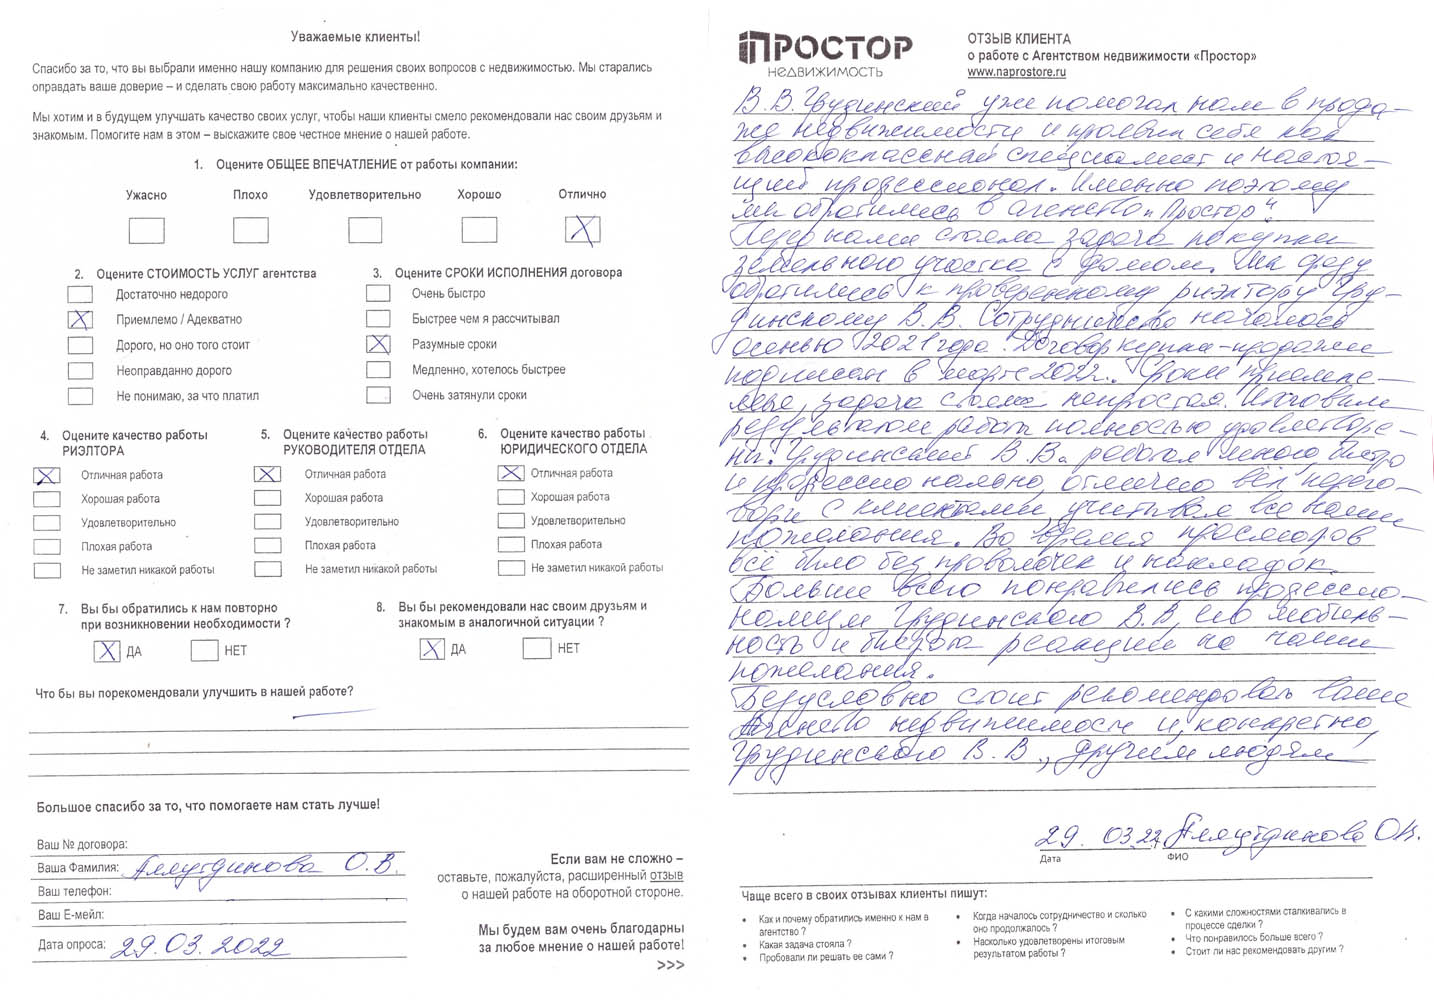 Уважаемые клиенты!
Спасибо за то, что вы выбрали именно нашу компанию для решения своих вопросов с недвижимостью. Мы старались
оправдать ваше доверие – и сделать свою работу максимально качественно.
Мы хотим и в будущем улучшать качество своих услуг, чтобы наши клиенты смело рекомендовали нас своим друзьям и
знакомым. Помогите нам в этом – выскажите свое честное мнение о нашей работе.
1. Оцените ОБЩЕЕ ВПЕЧАТЛЕНИЕ от работы компании:
Ужасно Плохо Удовлетворительно Хорошо Отлично
X
2. Оцените СТОИМОСТЬ УСЛУГ агентства
Достаточно недорого
X Приемлемо / Адекватно
Дорого, но оно того стоит
Неоправданно дорого
Не понимаю, за что платил
3. Оцените СРОКИ ИСПОЛНЕНИЯ договора
Очень быстро
Быстрее чем я рассчитывал
X Разумные сроки
Медленно, хотелось быстрее
Очень затянули сроки
4. Оцените качество работы
РИЭЛТОРА
X Отличная работа
Хорошая работа
Удовлетворительно
Плохая работа
Не заметил никакой работы
5. Оцените качество работы
РУКОВОДИТЕЛЯ ОТДЕЛА
X Отличная работа
Хорошая работа
Удовлетворительно
Плохая работа
Не заметил никакой работы
6. Оцените качество работы
ЮРИДИЧЕСКОГО ОТДЕЛА
X Отличная работа
Хорошая работа
Удовлетворительно
Плохая работа
Не заметил никакой работы
7. Вы бы обратились к нам повторно
при возникновении необходимости ?
X ДА НЕТ
8. Вы бы рекомендовали нас своим друзьям и
знакомым в аналогичной ситуации ?
X ДА НЕТ
Что бы вы порекомендовали улучшить в нашей работе?
Большое спасибо за то, что помогаете нам стать лучше!
Ваш № договора:
Ваша Фамилия: Аляутдинова О.В.
Ваш телефон:
Ваш E-мейл:
Дата опроса: 29.03.2022
Если вам не сложно –
оставьте, пожалуйста, расширенный отзыв
о нашей работе на оборотной стороне.
Мы будем вам очень благодарны
за любое мнение о нашей работе!
>>>
ПРОСТОР
НЕДВИЖИМОСТЬ
ОТЗЫВ КЛИЕНТА
о работе с Агентством недвижимости «Простор»
www.naprostore.ru
В.В. Грудинский уже помогал нам в прода-
же недвижимости и проявил себя как
высококлассный специалист и настоя-
щий профессионал. Именно поэтому
мы обратились в агенство "Простор".
Перед нами стояла задача покупки
земельного участка с домом. Мы сразу
обратились к проверенному риэлтору Гру-
динскому В.В. Сотрудничество началось
осенью 2021 года. Договор купли-продажи
подписан в марте 2022г. Сроки приемле-
мые, задача стояла непростая. Итоговым
результатом работы полностью удовлетворе-
ны. Грудинский В.В. работал много, быстро
и профессионально, отлично вёл перего-
воры с клиентами, учитывал все наши
пожелания. Во время просмотров
всё было без проволочек и накладок.
Больше всего понравились профессио-
нализм Грудинского В.В, его мобиль-
ность и быстрота реакции на наши
пожелания.
Безусловно стоит рекомендовать ваше
Агенство недвижимости и, конкретно,
Грудинского В.В., другим людям!
29.03.22г. Аляутдинова О.В.
Дата ФИО
Чаще всего в своих отзывах клиенты пишут:
• Как и почему обратились именно к нам в
агентство ?
• Какая задача стояла ?
• Пробовали ли решать ее сами ?
• Когда началось сотрудничество и сколько
оно продолжалось ?
• Насколько удовлетворены итоговым
результатом работы ?
• С какими сложностями сталкивались в
процессе сделки ?
• Что понравилось больше всего ?
• Стоит ли нас рекомендовать другим ?